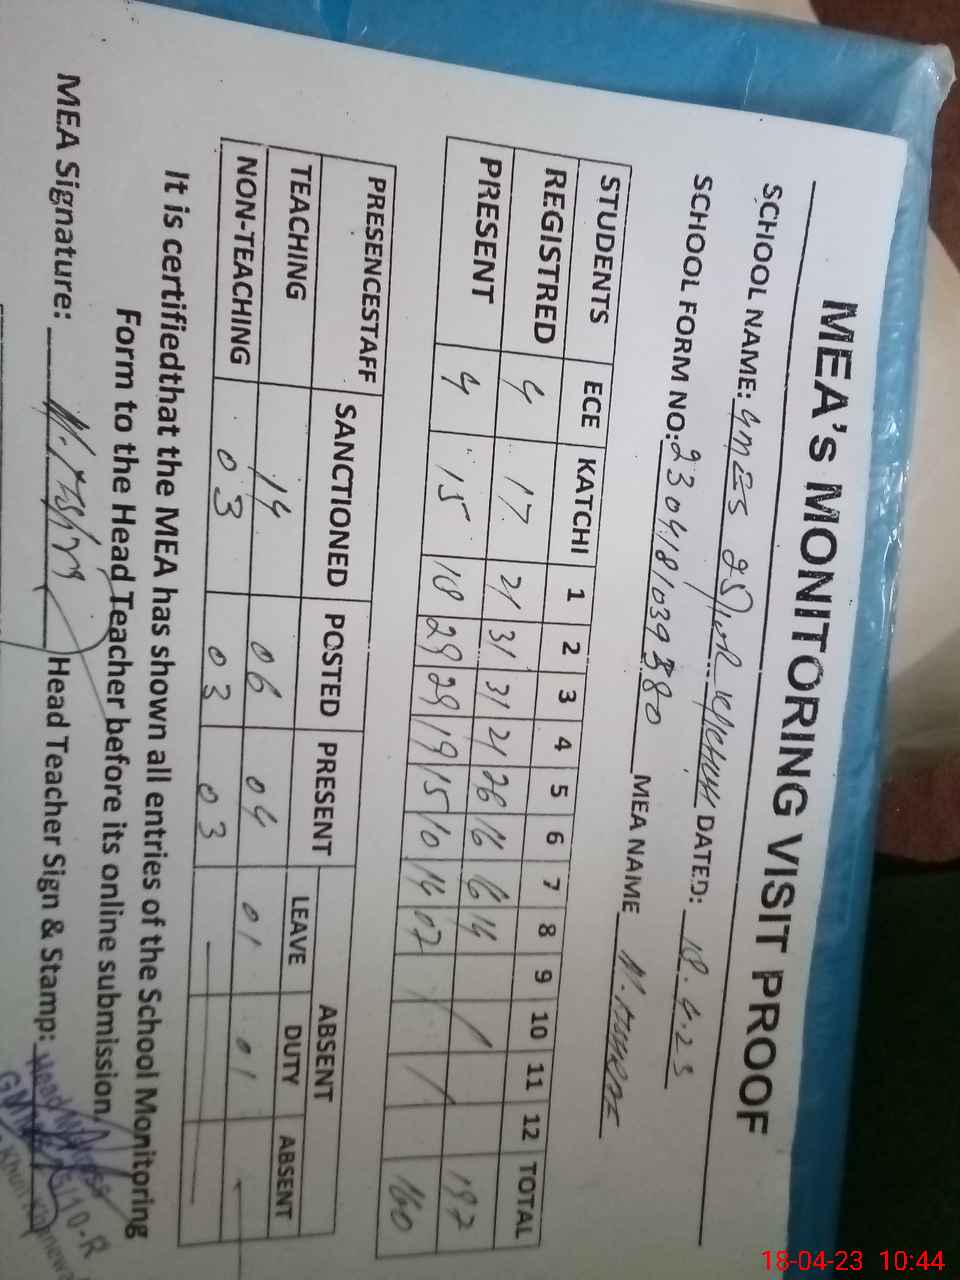 MEA's MONITORING VISIT PROOF
SCHOOL NAME: DATED: 18.4.23
SCHOOL FORM NO: MEA NAME
STUDENTS ECE KATCHI 1 2 3 4 5 6 7 8 9 10 11 12 TOTAL
REGISTRED 4 17 21 31 31 21 26 16 16 14 197
PRESENT 4 15 18 29 29 19 15 10 14 07 160
PRESENCESTAFF SANCTIONED POSTED PRESENT ABSENT
LEAVE DUTY ABSENT
TEACHING 14 06 04 01 01 -
NON-TEACHING 03 03 03
It is certifiedthat the MEA has shown all entries of the School Monitoring
Form to the Head Teacher before its online submission.
MEA Signature: Head Teacher Sign & Stamp:
18-04-23 10:44